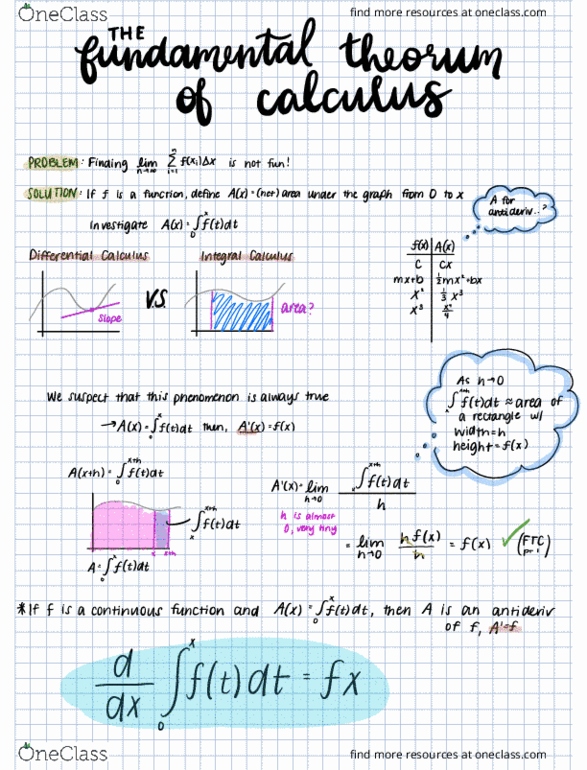 OneClass
find more resources at oneclass.com
THE
fundamental theorum
of calculus
PROBLEM: Finding lim n→∞ Σ i=1 n f(xᵢ)Δx is not fun!
SOLUTION: If f is a function, define A(x) = (net) area under the graph from 0 to x
A for
antideriv..?
Investigate A(x) = ∫₀ˣ f(t)dt
f(x) | A(x)
C | Cx
mx+b | ½mx²+bx
x² | ⅓x³
x³ | x⁴/4
Differential Calculus
V.S.
Integral Calculus
slope
area?
As h→0
∫ₓˣ⁺ʰ f(t)dt ≈ area of
a rectangle w/
width=h
height=f(x)
We suspect that this phenomenon is always true
→A(x) = ∫₀ˣ f(t)dt then, A'(x) = f(x)
A(x+h) = ∫₀ˣ⁺ʰ f(t)dt
∫ₓˣ⁺ʰ f(t)dt
x x+h
A = ∫₀ˣ f(t)dt
A'(x) = lim h→0 ∫ₓˣ⁺ʰ f(t)dt / h
h is almost
0, very tiny
= lim h→0 h f(x) / h = f(x) ✓ (FTC pt 1)
*If f is a continuous function and A(x) = ∫₀ˣ f(t)dt, then A is an antideriv
of f, A'=f
d/dx ∫₀ˣ f(t) dt = fx
OneClass
find more resources at oneclass.com